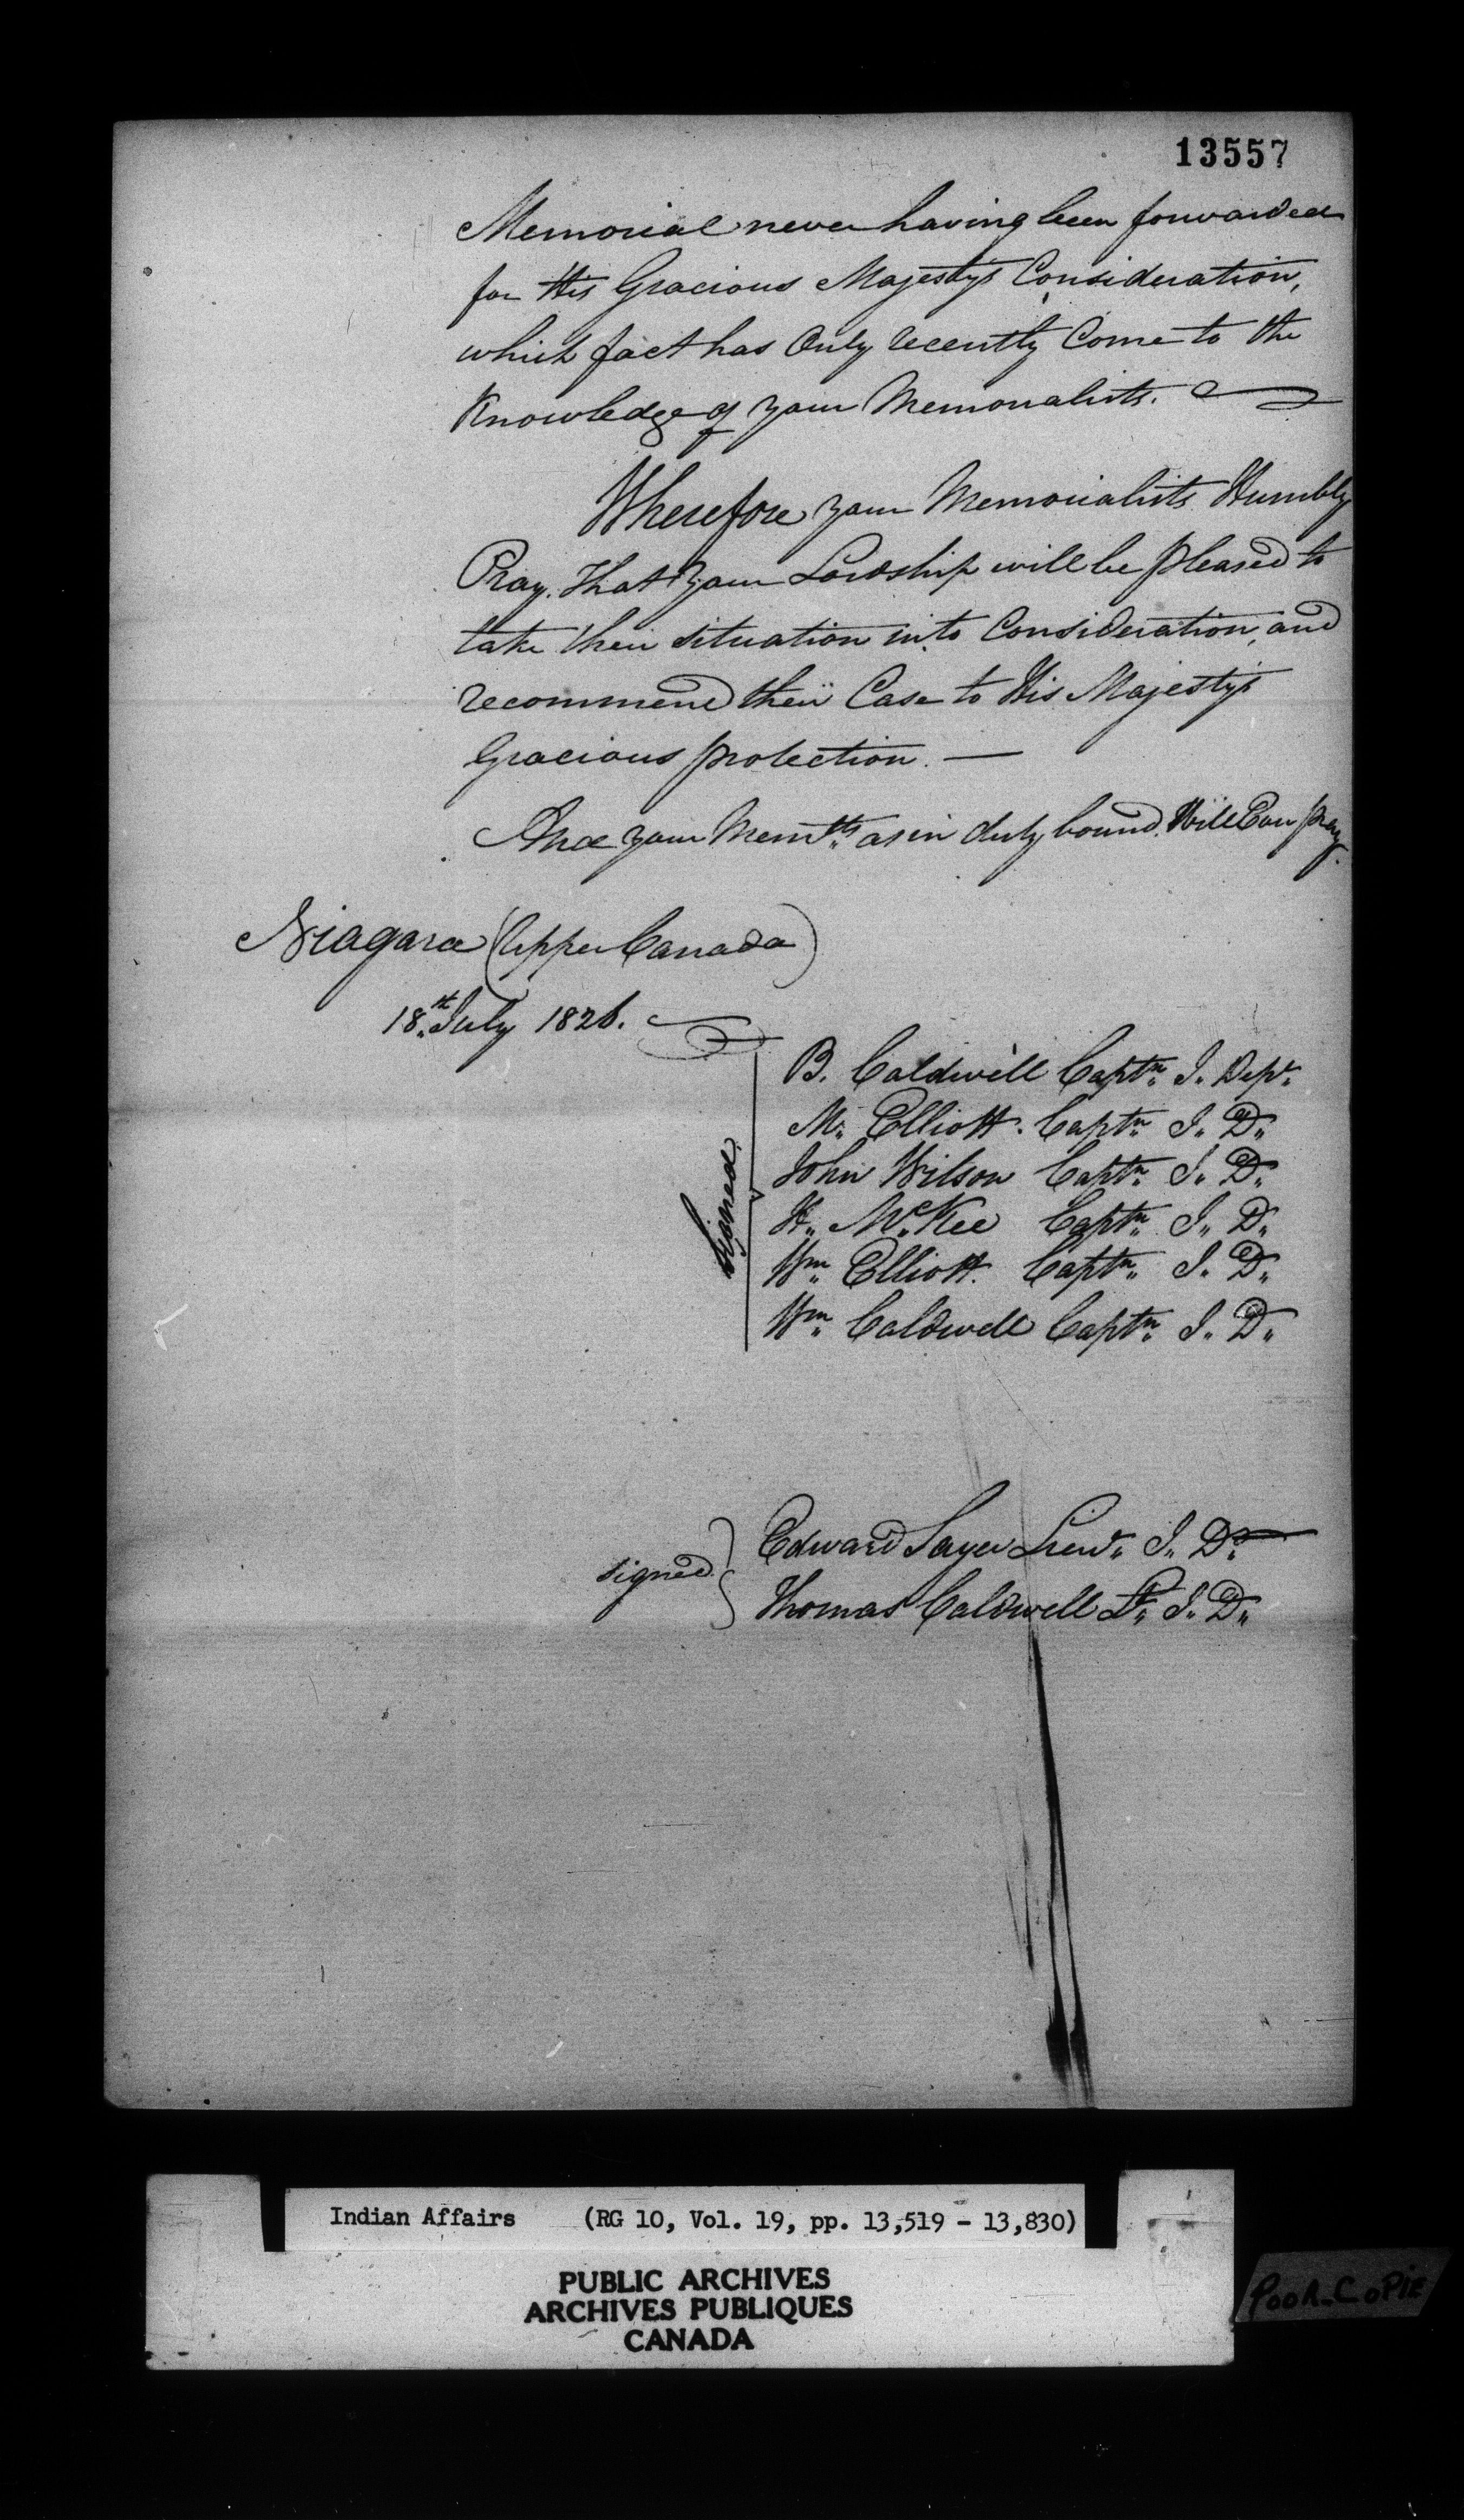 13557
Memorial never having been forwarded
for His Gracious Majesty's Consideration,
which fact has Only recently Come to the
Knowledge of your Memorialists.
Wherefore your Memorialists Humbly
Pray. That your Lordship will be pleased to
take their situation into Consideration, and
recommend their Case to His Majesty's
Gracious protection. —
And your Memlts as in duty bound. Will Ever pray.
Niagara (Upper Canada)
18th July 1826.
Signed.
B. Caldwell Captn. I. Dept.
M. Elliott. Captn. I. D.
John Wilson Captn. I. D.
H. McKee Captn. I. D.
Wm. Elliott. Captn. I. D.
Wm. Caldwell Captn. I. D.
signed
Edward Sayer Lieut. I. D.
Thomas Caldwell Lt. I. D.
Indian Affairs (RG 10, Vol. 19, pp. 13,519 - 13,830)
PUBLIC ARCHIVES
ARCHIVES PUBLIQUES
CANADA
POOR COPIE